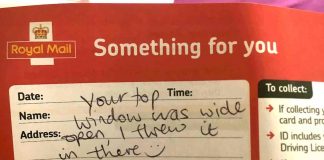 Royal Mail
Something for you
Date: Your top Time:
Name: window was wide
Address: open I threw it
in there
To collect:
If collecting y
card and pro
ID includes
Driving Lice